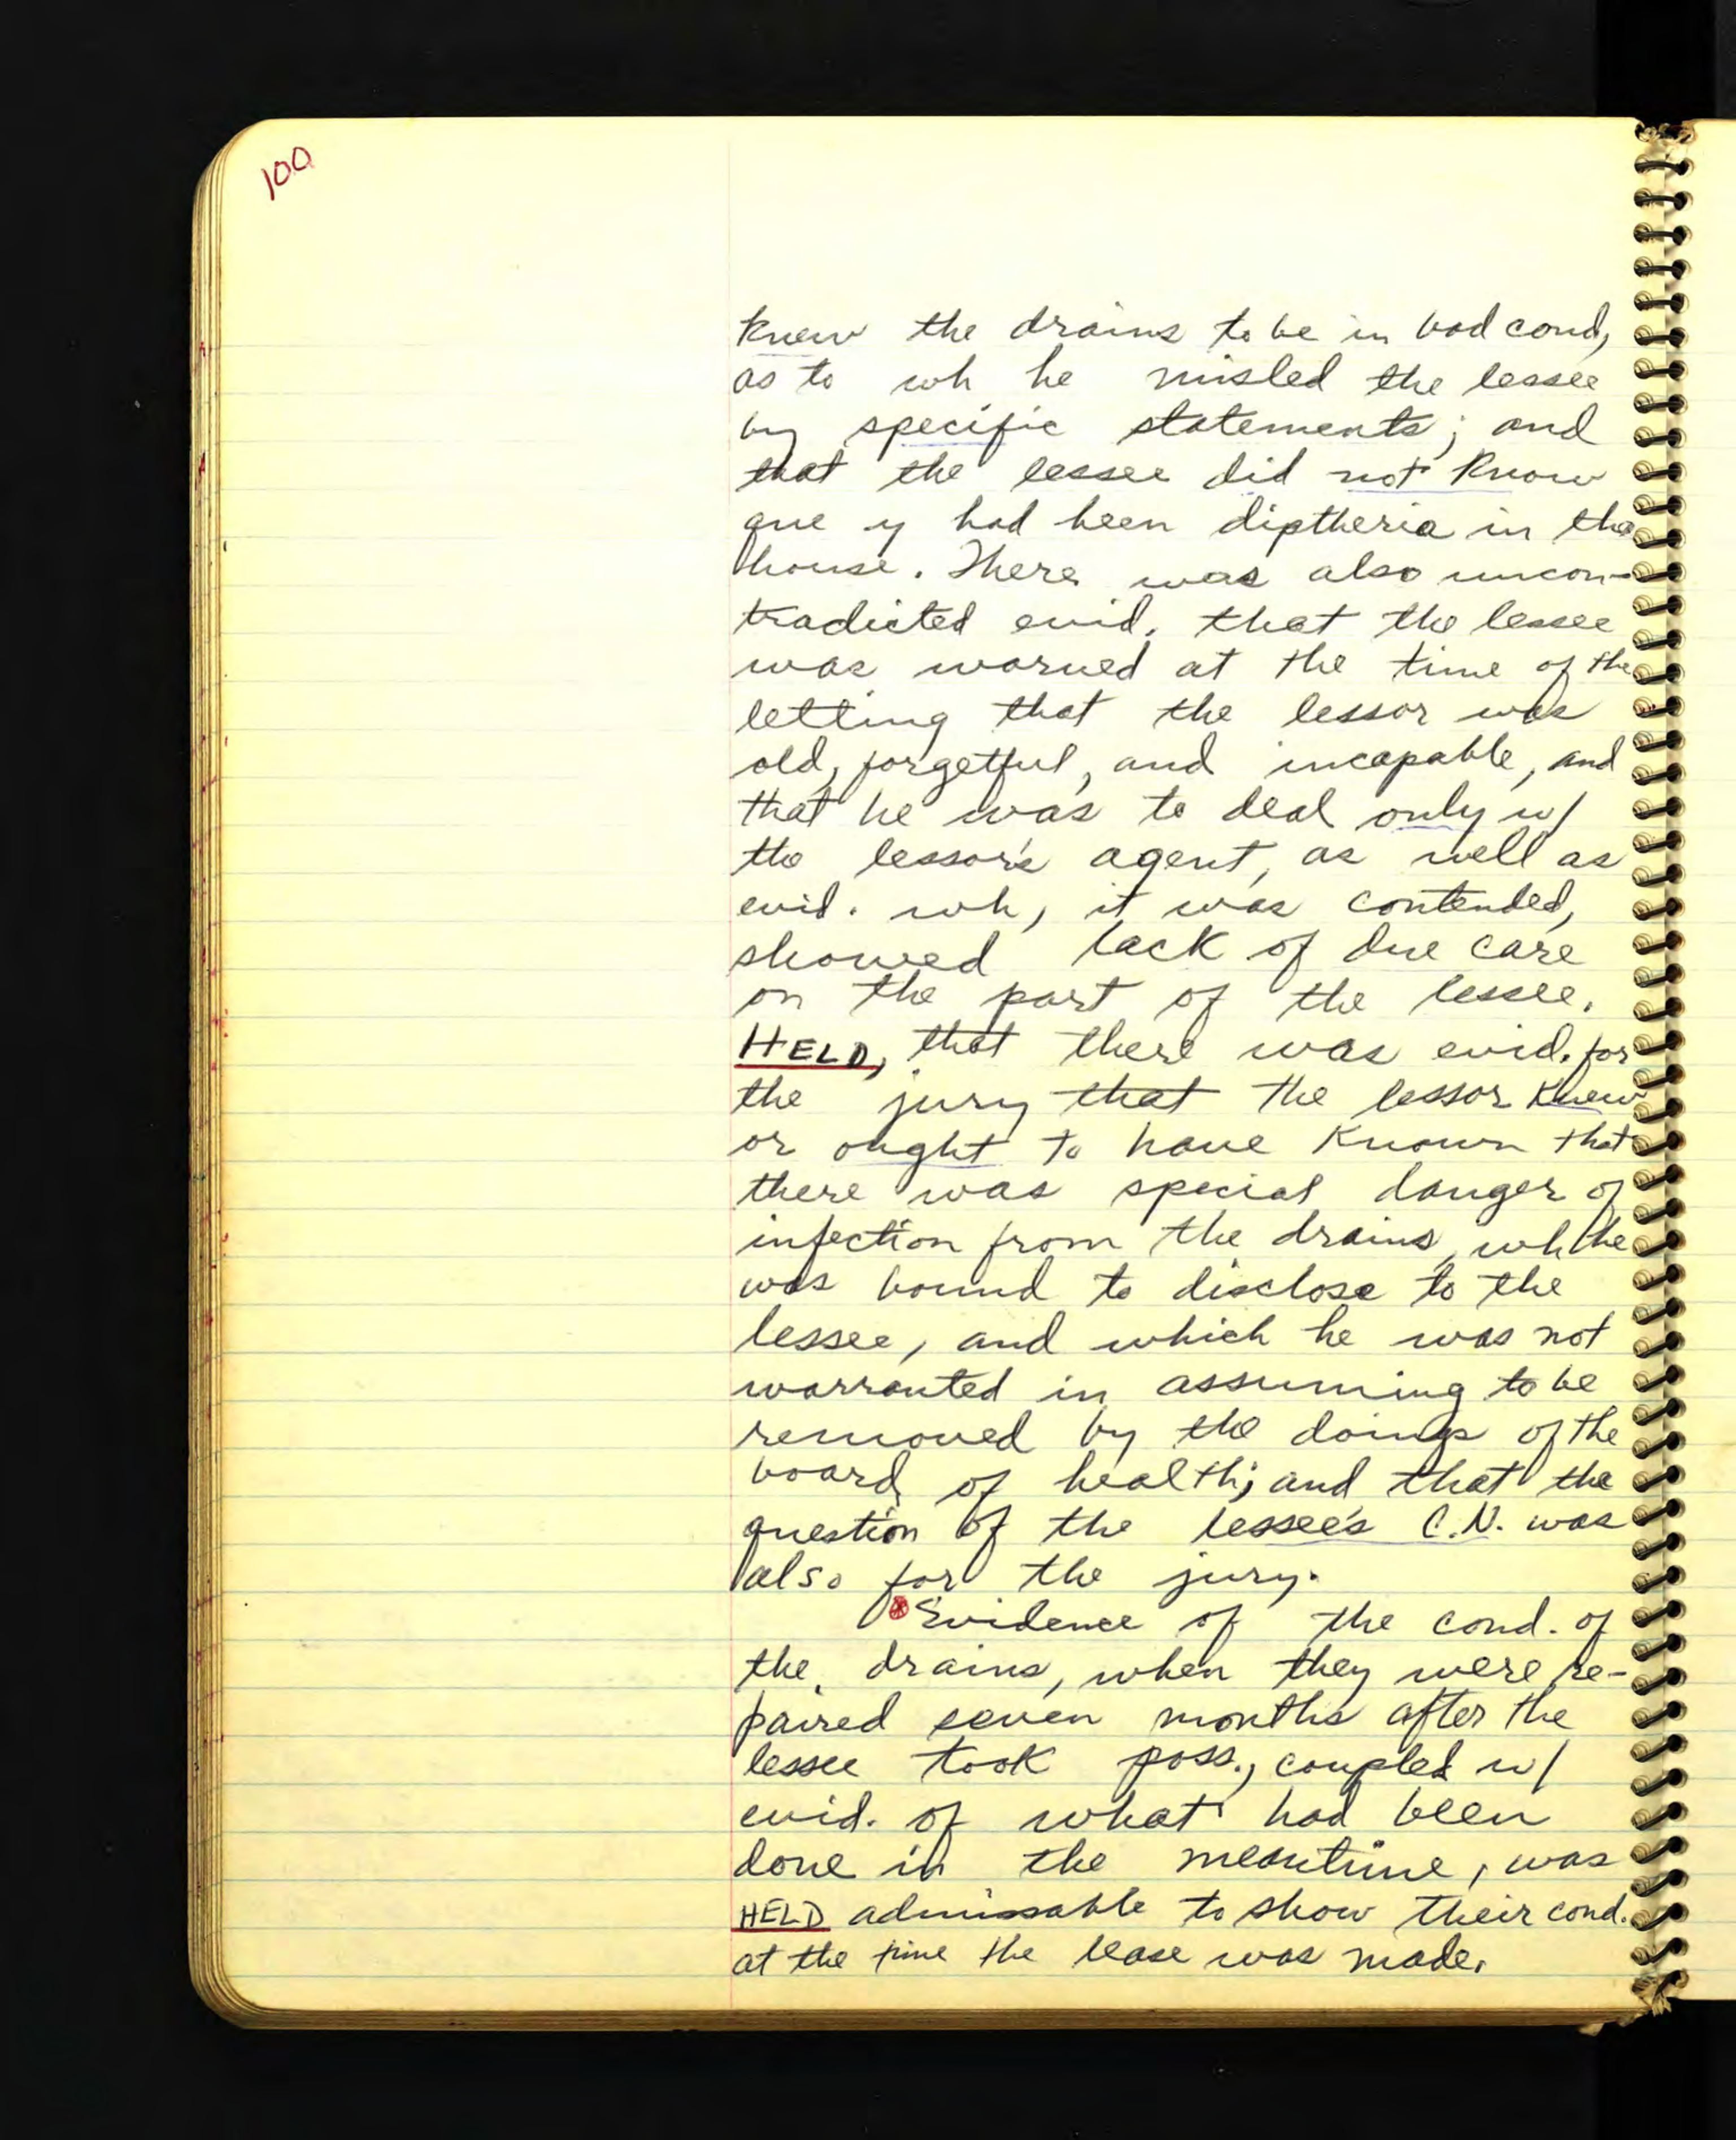 100
knew the drains to be in bad cond,
as to wh he misled the lessee
by specific statements; and
that the lessee did not know
que y had been diptheria in the
house. There was also uncon-
tradicted evid. that the lessee
was warned at the time of the
letting that the lessor was
old, forgetful, and incapable, and
that he was to deal only w/
the lessor's agent, as well as
evid. wh, it was contended,
showed lack of due care
on the part of the lessee.
HELD, that there was evid. for
the jury that the lessor knew
or ought to have known that
there was special danger of
infection from the drains, wh he
was bound to disclose to the
lessee, and which he was not
warranted in assuming to be
removed by the doings of the
board of health; and that the
question of the lessee's C.N. was
also for the jury.
Evidence of the cond. of
the drains, when they were re-
paired seven months after the
lessee took poss., coupled w/
evid. of what had been
done in the meantime, was
HELD admissable to show their cond.
at the time the lease was made.